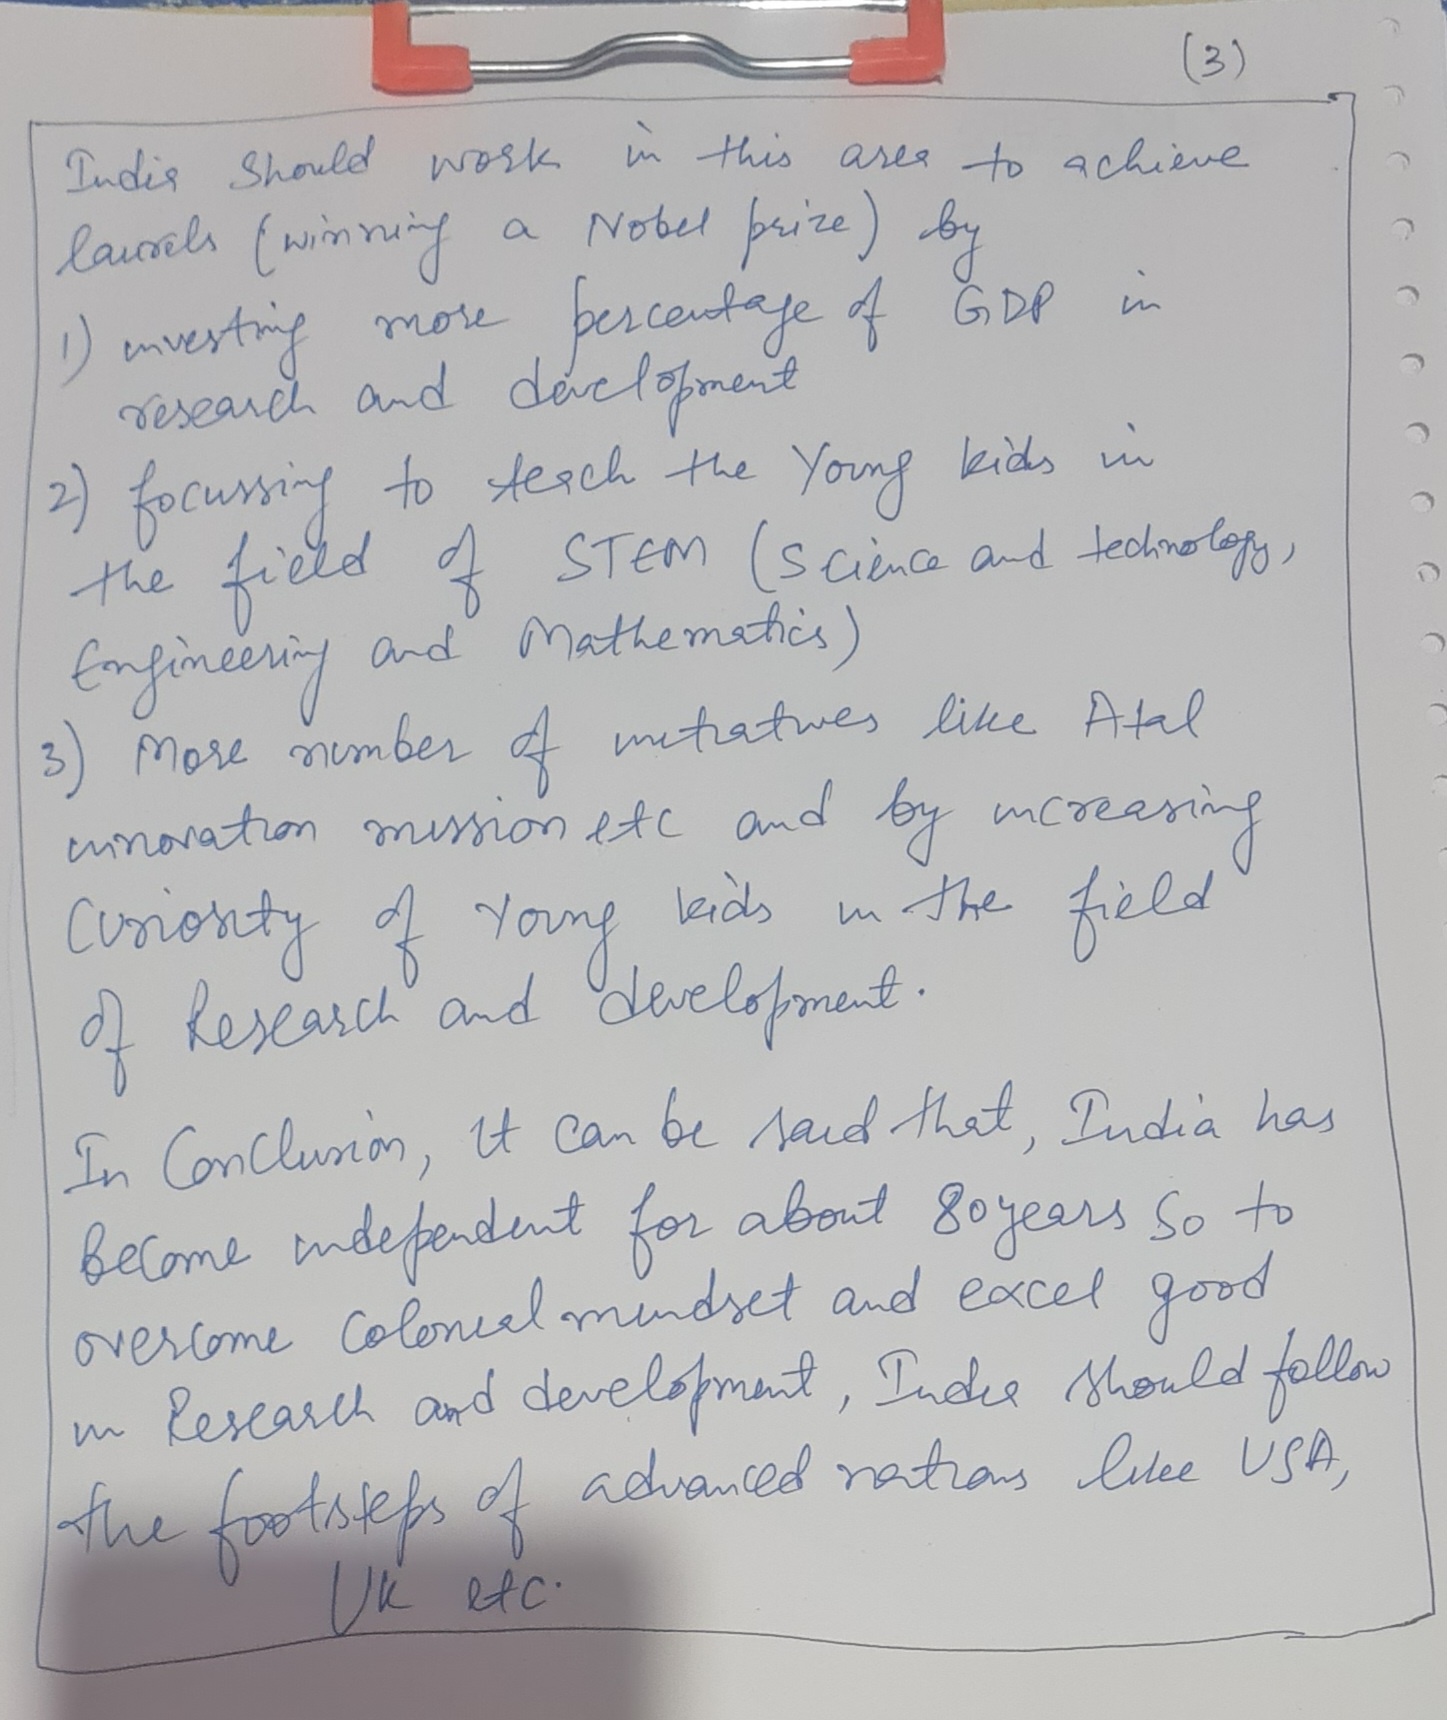 (3)
India Should work in this area to achieve
laurels (winning a Nobel prize) by
1) investing more percentage of GDP in
research and development
2) focussing to teach the Young kids in
the field of STEM (Science and technology,
Engineering and Mathematics)
3) More number of initiatives like Atal
innovation mission etc and by increasing
Curiosity of Young kids in the field
of Research and development.
In Conclusion, it can be said that, India has
Become independent for about 80 years So to
overcome Colonial mindset and excel good
in Research and development, India should follow
the footsteps of advanced nations like USA,
UK etc.